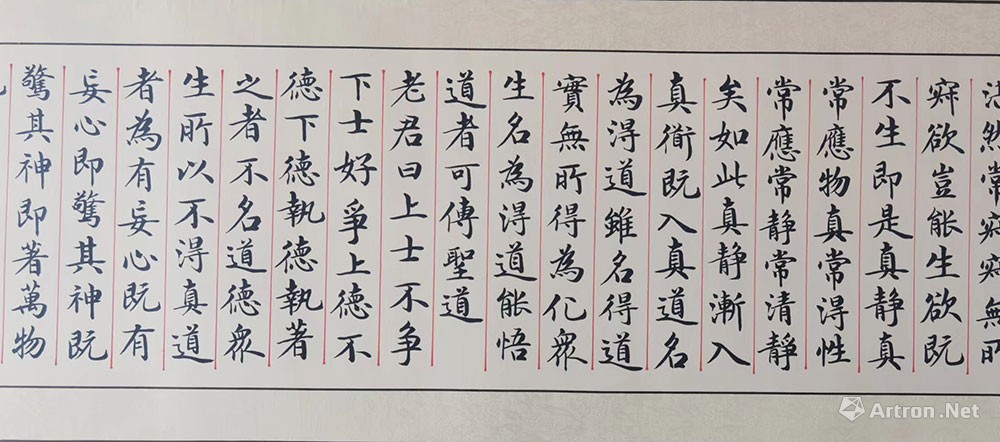 然常寂寂無所
寂欲豈能生欲既
不生即是真静真
常應物真常得性
常應常静常清静
矣如此真静漸入
真衜既入真道名
為得道雖名得道
實無所得為化衆
生名為得道能悟
道者可傳聖道
老君曰上士不争
下士好爭上德不
德下德執德執著
之者不名道德衆
生所以不得真道
者為有妄心既有
妄心即驚其神既
驚其神即著萬物
Artron.Net